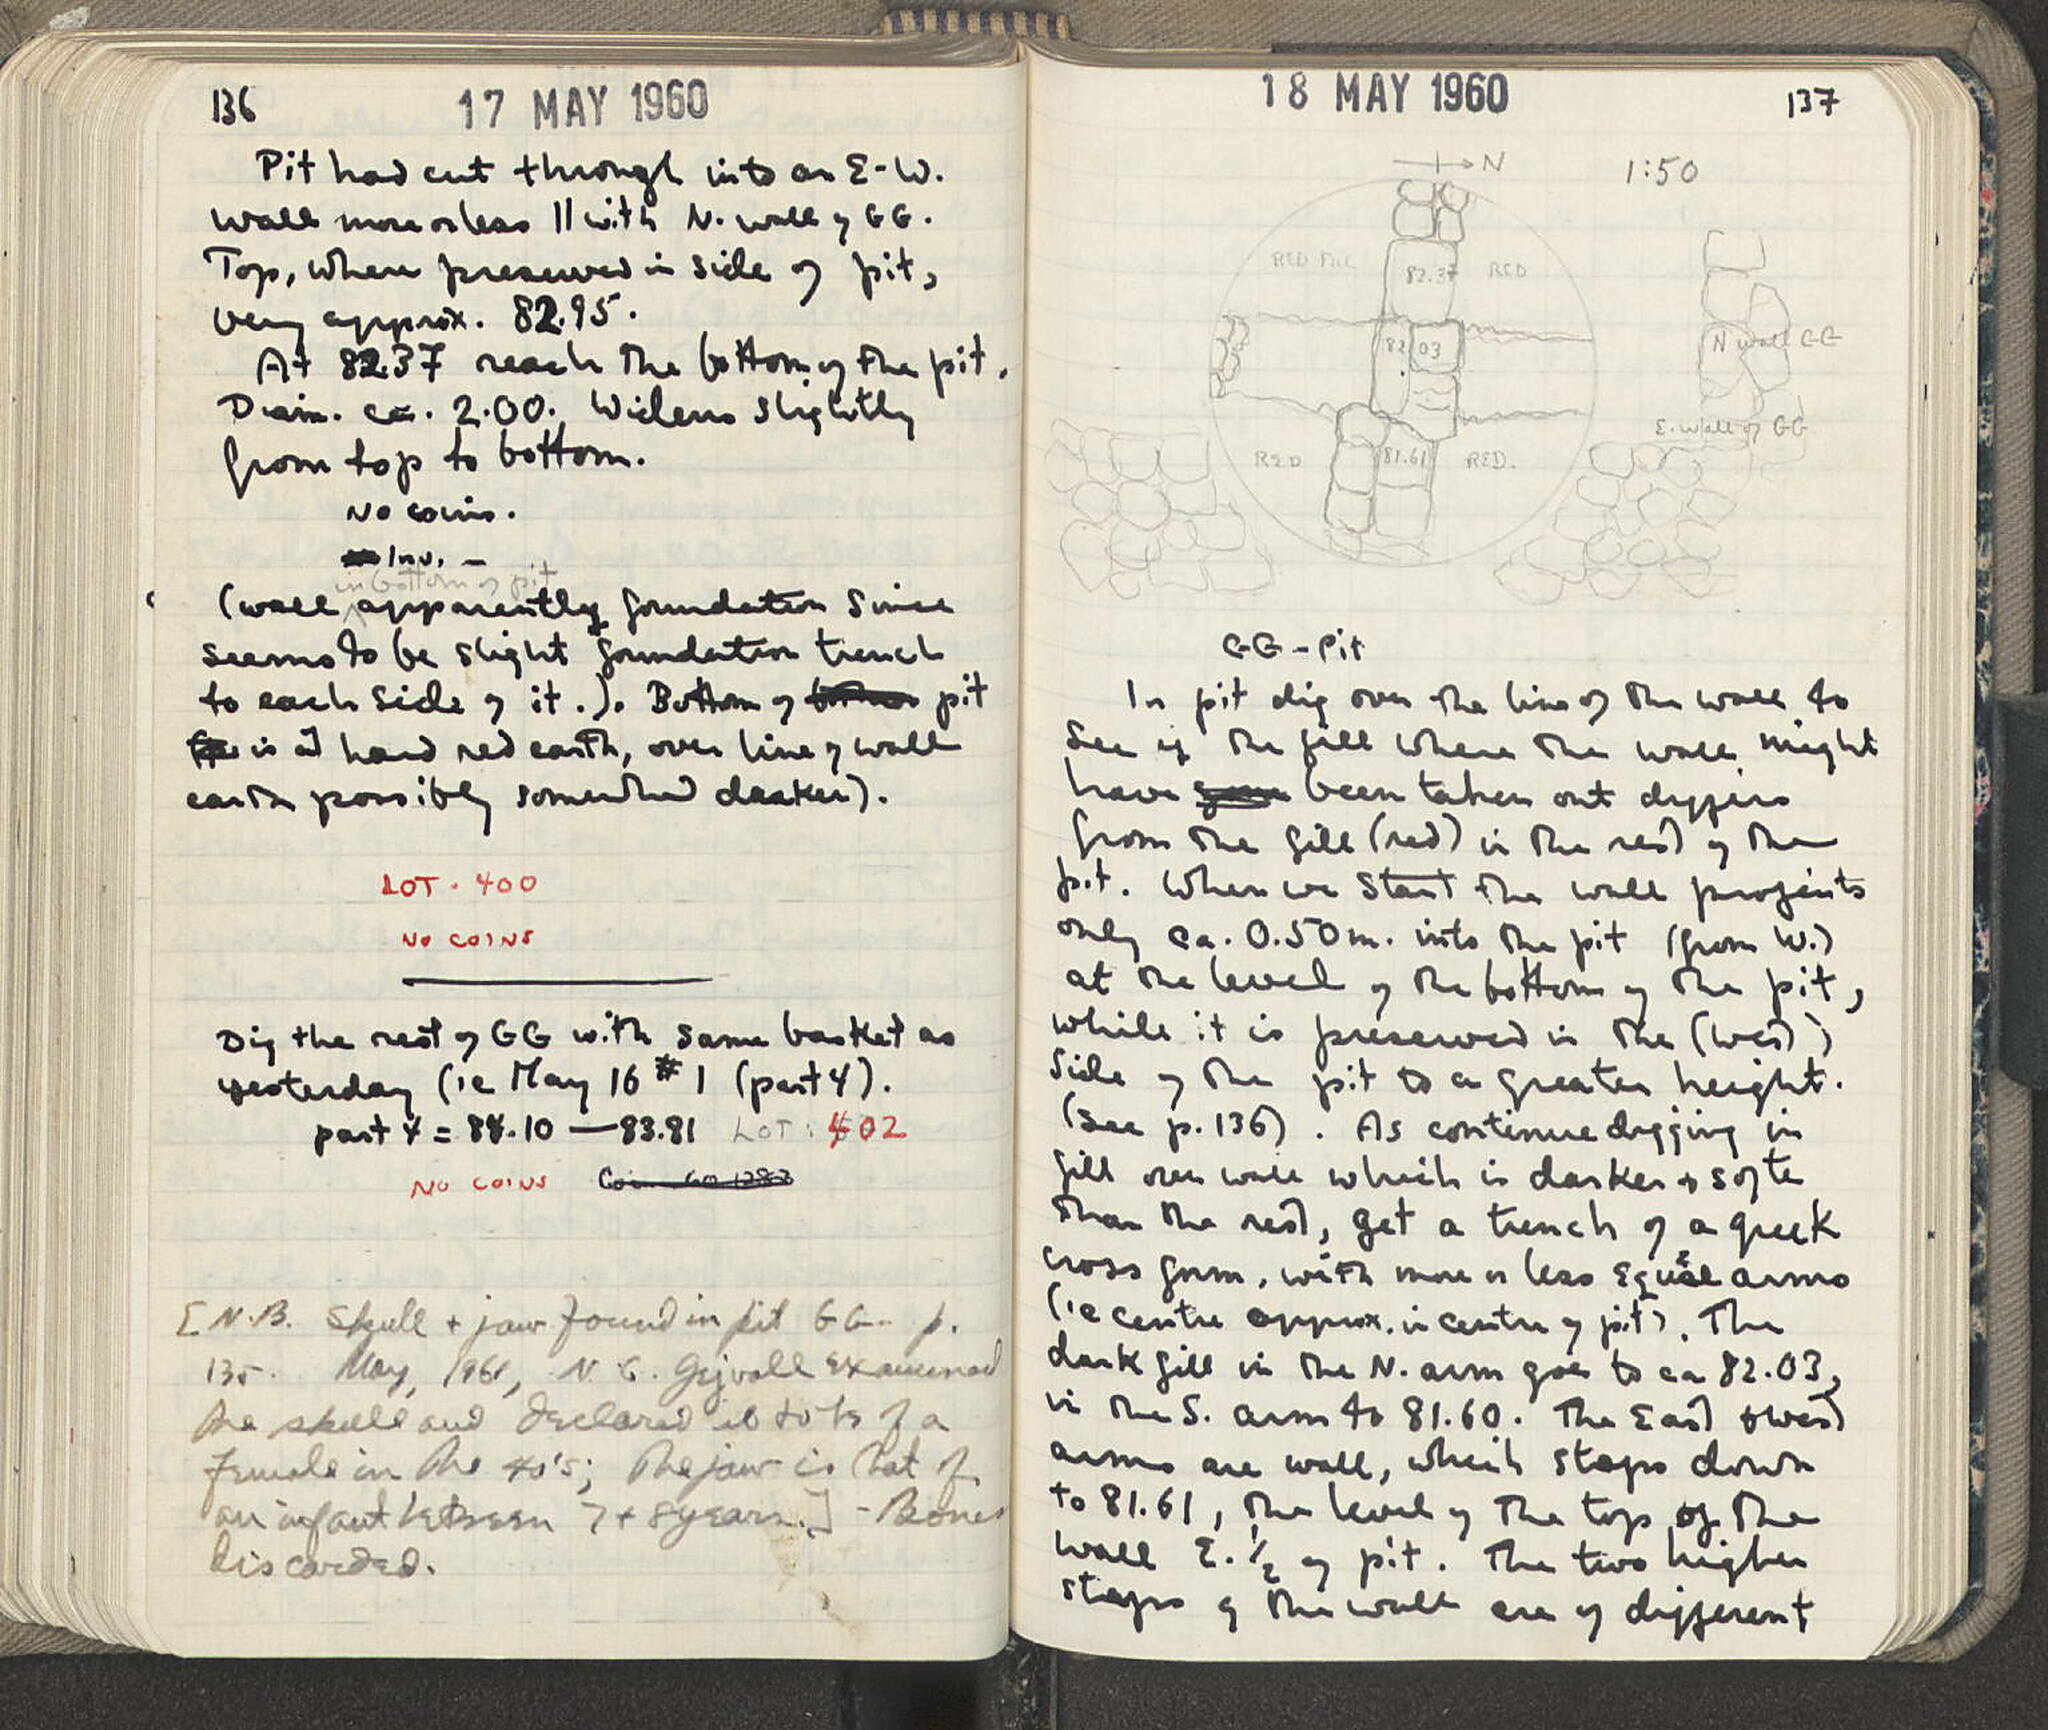 136
17 MAY 1960
Pit had cut through into an E-W.
wall more or less || with N. wall of GG.
Top, where preserved in side of pit,
very approx. 82.95.
At 82.37 reach the bottom of the pit.
Diam. ca. 2.00. Widens slightly
from top to bottom.
No coins.
Inv. –
in bottom of pit
(wall apparently foundation since
seems to be slight foundation trench
to each side of it.). Bottom of pit
is at hard red earth, over line of wall
earth possibly somewhat darker).
LOT. 400
NO COINS
Dig the rest of GG with same basket as
yesterday (ie May 16 #1 (part 4).
part 4 = 84.10 — 83.81 LOT: 402
NO COINS
[N.B. Skull + jaw found in pit GG – p.
135. May, 1961, N. G. Gejvall examined
the skull and declared it to be of a
female in the 40's; the jaw is that of
an infant between 7 + 8 years.] - Bones
discarded.
18 MAY 1960
137
N
1:50
RED FILL
82.37
RED
82.03
N wall GG
E. wall of GG
RED
81.61
RED.
GG - Pit
In pit dig over the line of the wall to
see if the fill where the wall might
have been taken out differs
from the fill (red) in the rest of the
pit. When we start the wall projects
only ca. 0.50 m. into the pit (from W.)
at the level of the bottom of the pit,
while it is preserved in the (west)
side of the pit to a greater height.
(see p. 136). As continue digging in
fill over wall which is darker + softer
than the rest, get a trench of a greek
cross form, with more or less equal arms
(ie centre approx. in centre of pit). The
dark fill in the N. arm goes to ca 82.03,
in the S. arm to 81.60. The East + West
arms are wall, which steps down
to 81.61, the level of the top of the
wall E. 1/2 of pit. The two higher
steps of the wall are of different